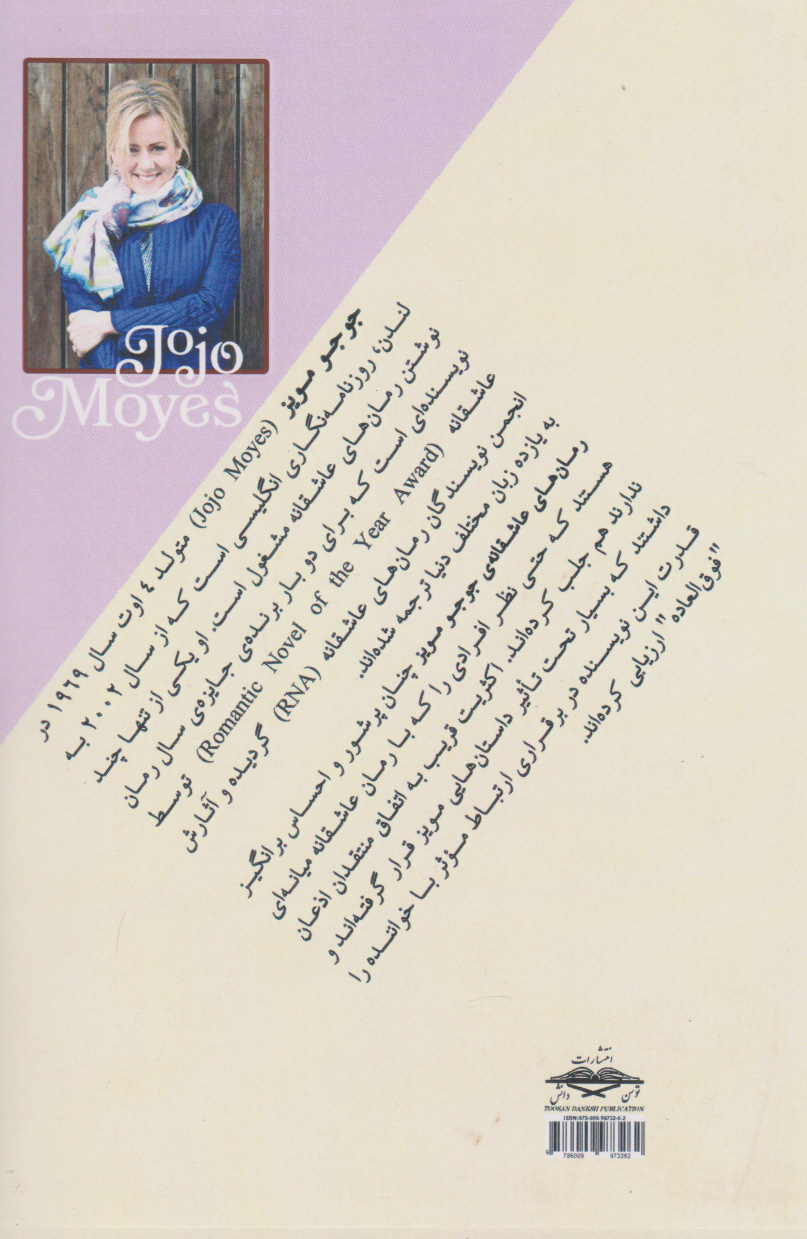 Jojo
Moyes
جوجو مویز (Jojo Moyes) متولد ٤ اوت سال ١٩٦٩ در
لندن، روزنامه‌نگاری انگلیسی است که از سال ٢٠٠٢ به
نوشتن رمان‌های عاشقانه مشغول است. او یکی از تنها چند
نویسنده‌ای است که برای دو بار برنده‌ی جایزه‌ی سال رمان
عاشقانه (Romantic Novel of the Year Award) توسط
انجمن نویسندگان رمان‌های عاشقانه (RNA) گردیده و آثارش
به یازده زبان مختلف دنیا ترجمه شده‌اند.
رمان‌های عاشقانه‌ی جوجو مویز چنان پرشور و احساس برانگیز
هستند که حتی نظر افرادی را که با رمان عاشقانه میانه‌ای
ندارند هم جلب کرده‌اند. اکثریت قریب به اتفاق منتقدان اذعان
داشتند که بسیار تحت تأثیر داستان‌هایی مویز قرار گرفته‌اند و
قدرت این نویسنده در برقراری ارتباط مؤثر با خواننده را
"فوق‌العاده" ارزیابی کرده‌اند.
انتشارات
توسن دانش
TOOSAN DANESH PUBLICATION
ISBN: